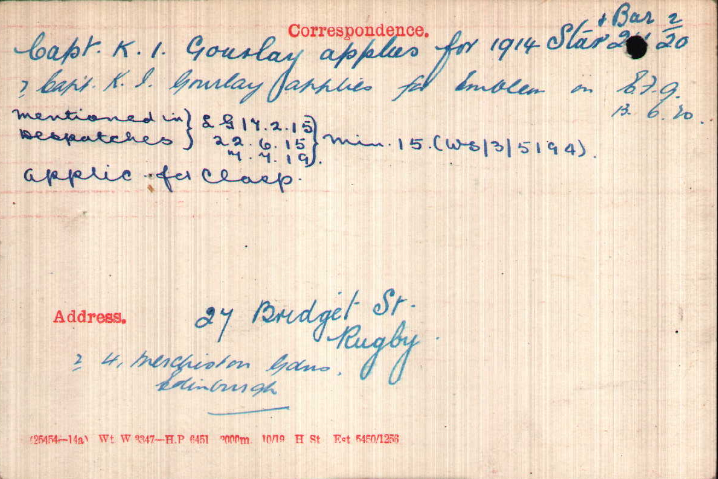 Correspondence.
+ Bar 2
Capt. K. I. Gourlay applies for 1914 Star 20
2 Capt. K. I. Gourlay applies for Emblem on E.F.9.
13. 6. 20.
mentioned in } L G 17.2.15
Despatches } 22.6.15 } min. 15. (WS/3/5194).
7.7.19
applic. for Clasp.
Address. 27 Bridget St.
Rugby.
2 4, Merchiston Gdns.
Edinburgh
(25454—14a) Wt W 3347—H.P 6451 2000m. 10/19 H St Est 5450/1256